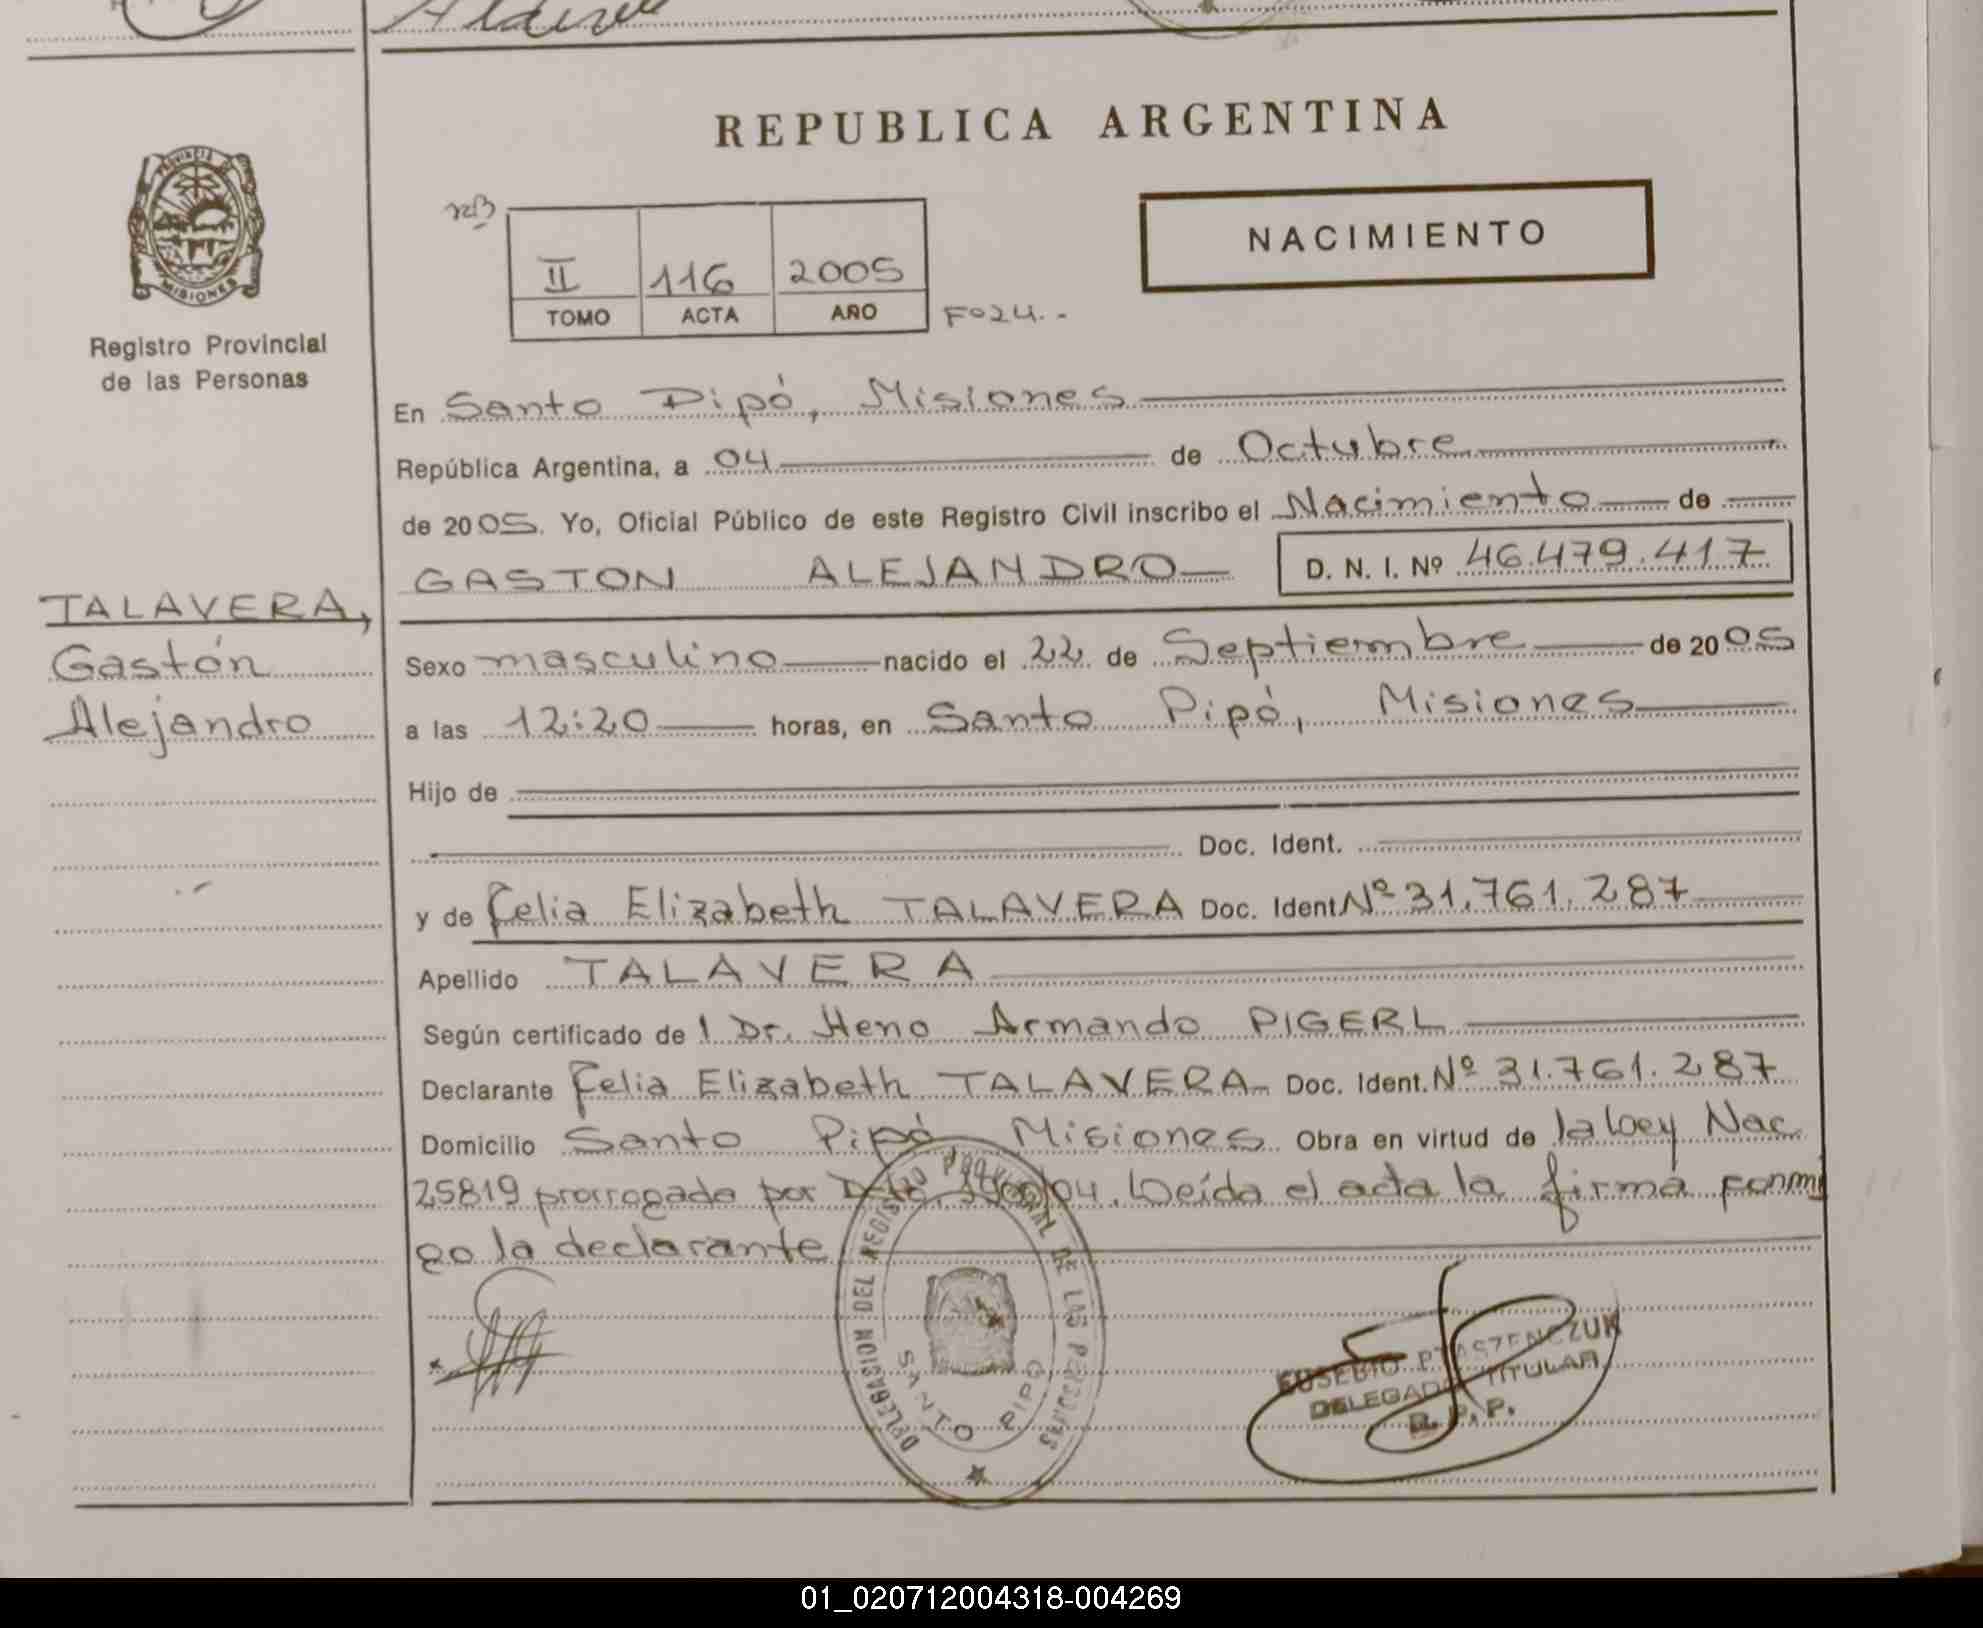 REPUBLICA ARGENTINA
PROVINCIA DE MISIONES
Registro Provincial
de las Personas
NACIMIENTO
II 116 2005
TOMO ACTA AÑO
Fº24.-
En Santo Pipó, Misiones
República Argentina, a 04 de Octubre
de 2005. Yo, Oficial Público de este Registro Civil inscribo el Nacimiento de
GASTON ALEJANDRO D. N. I. Nº 46.479.417
TALAVERA,
Gastón
Alejandro
Sexo masculino nacido el 22 de Septiembre de 2005
a las 12:20 horas, en Santo Pipó, Misiones
Hijo de
Doc. Ident.
y de Celia Elizabeth TALAVERA Doc. Ident Nº 31.761.287
Apellido TALAVERA
Según certificado de l Dr. Heno Armando PIGERL
Declarante Celia Elizabeth TALAVERA Doc. Ident. Nº 31.761.287
Domicilio Santo Pipó Misiones Obra en virtud de la Ley Nac
25819 prorrogada por /04. Leída el acta la firma conmi
go la declarante
DELEGACION DEL REGISTRO PROVINCIAL DE LAS PERSONAS
SANTO PIPO
EUSEBIO PTASZENCZUK
DELEGADO TITULAR
R. P. P.
01_020712004318-004269